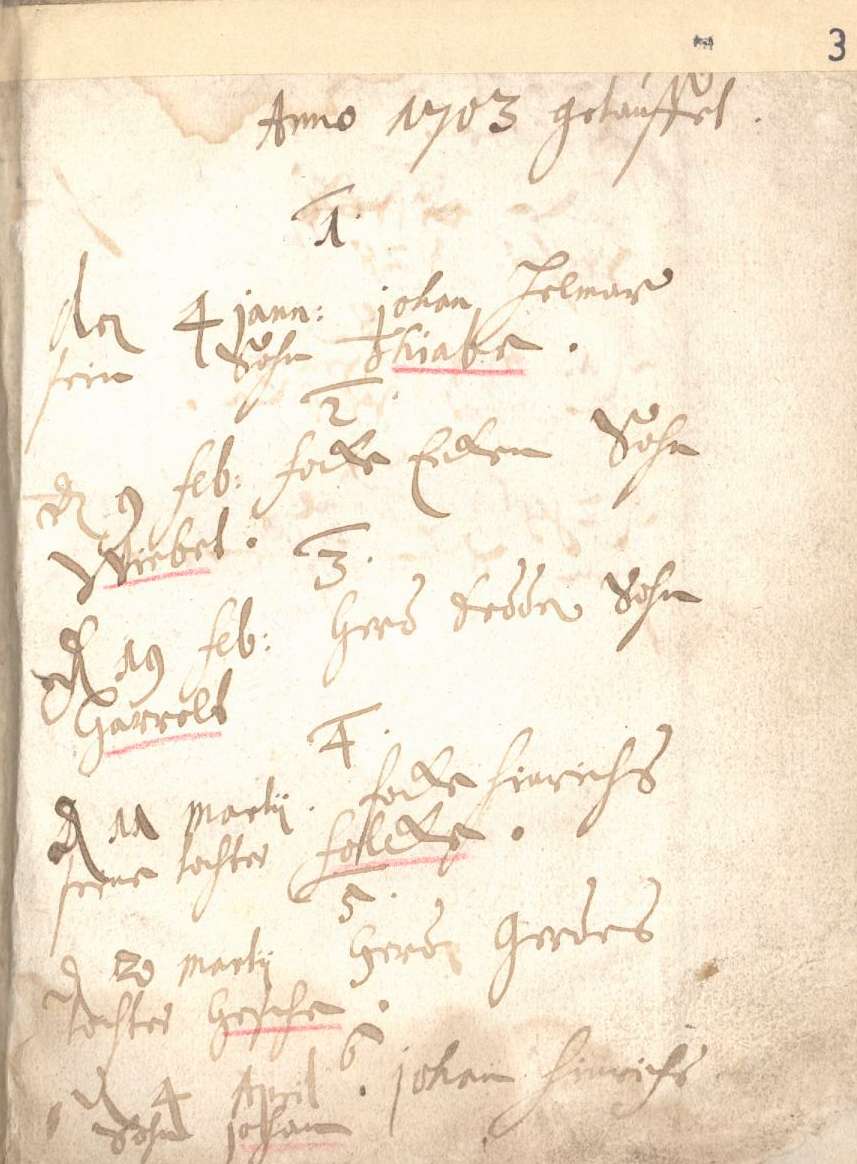 3
Anno 1703 getauffet.
1.
den 4 jann: johan Jelmar
sein Sohn Thiabe.
2.
d 9 feb: focke Ecken Sohn
Wiebet.
3.
d 19 feb: Gerd Sohn
Garrelt
4.
d 11 Martij. focke hinrichs
seine tochter folcke.
5.
d 20 Martij Gerd Gerdes
tochter Gesche.
6.
d 4 April johan hinrichs
Sohn johan